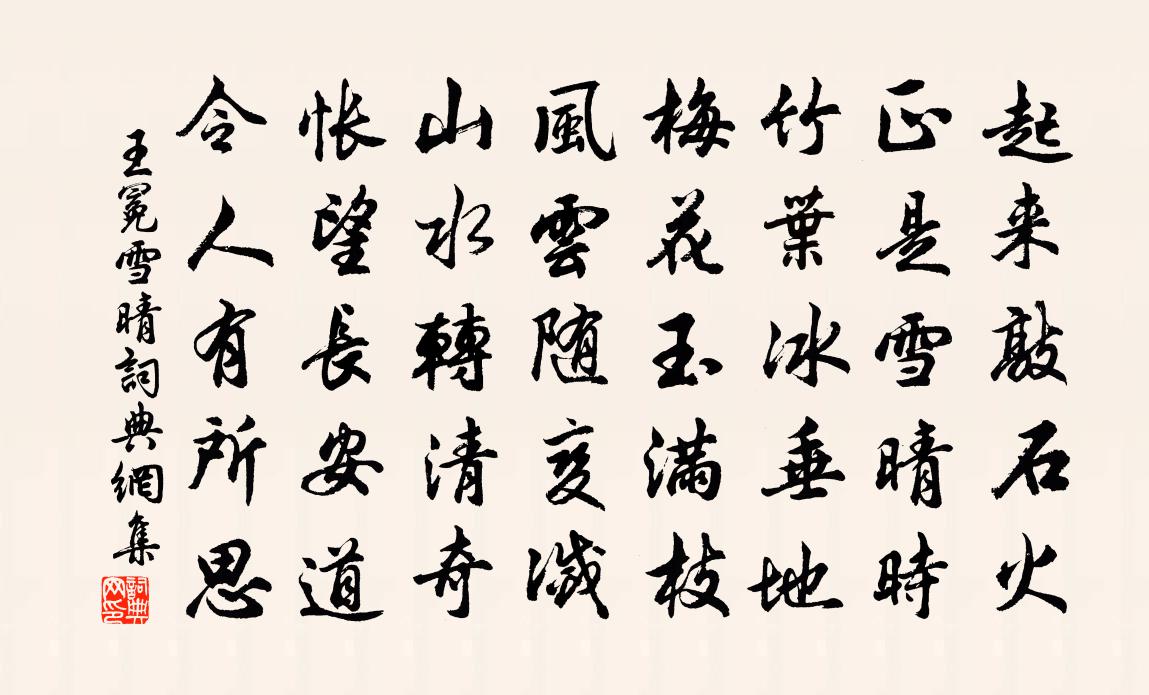 起来敲石火
正是雪晴時
竹葉冰垂地
梅花玉滿枝
風雲随变滅
山水轉清奇
悵望長安道
令人有所思
王冕雪晴詞典網集
詞典网印